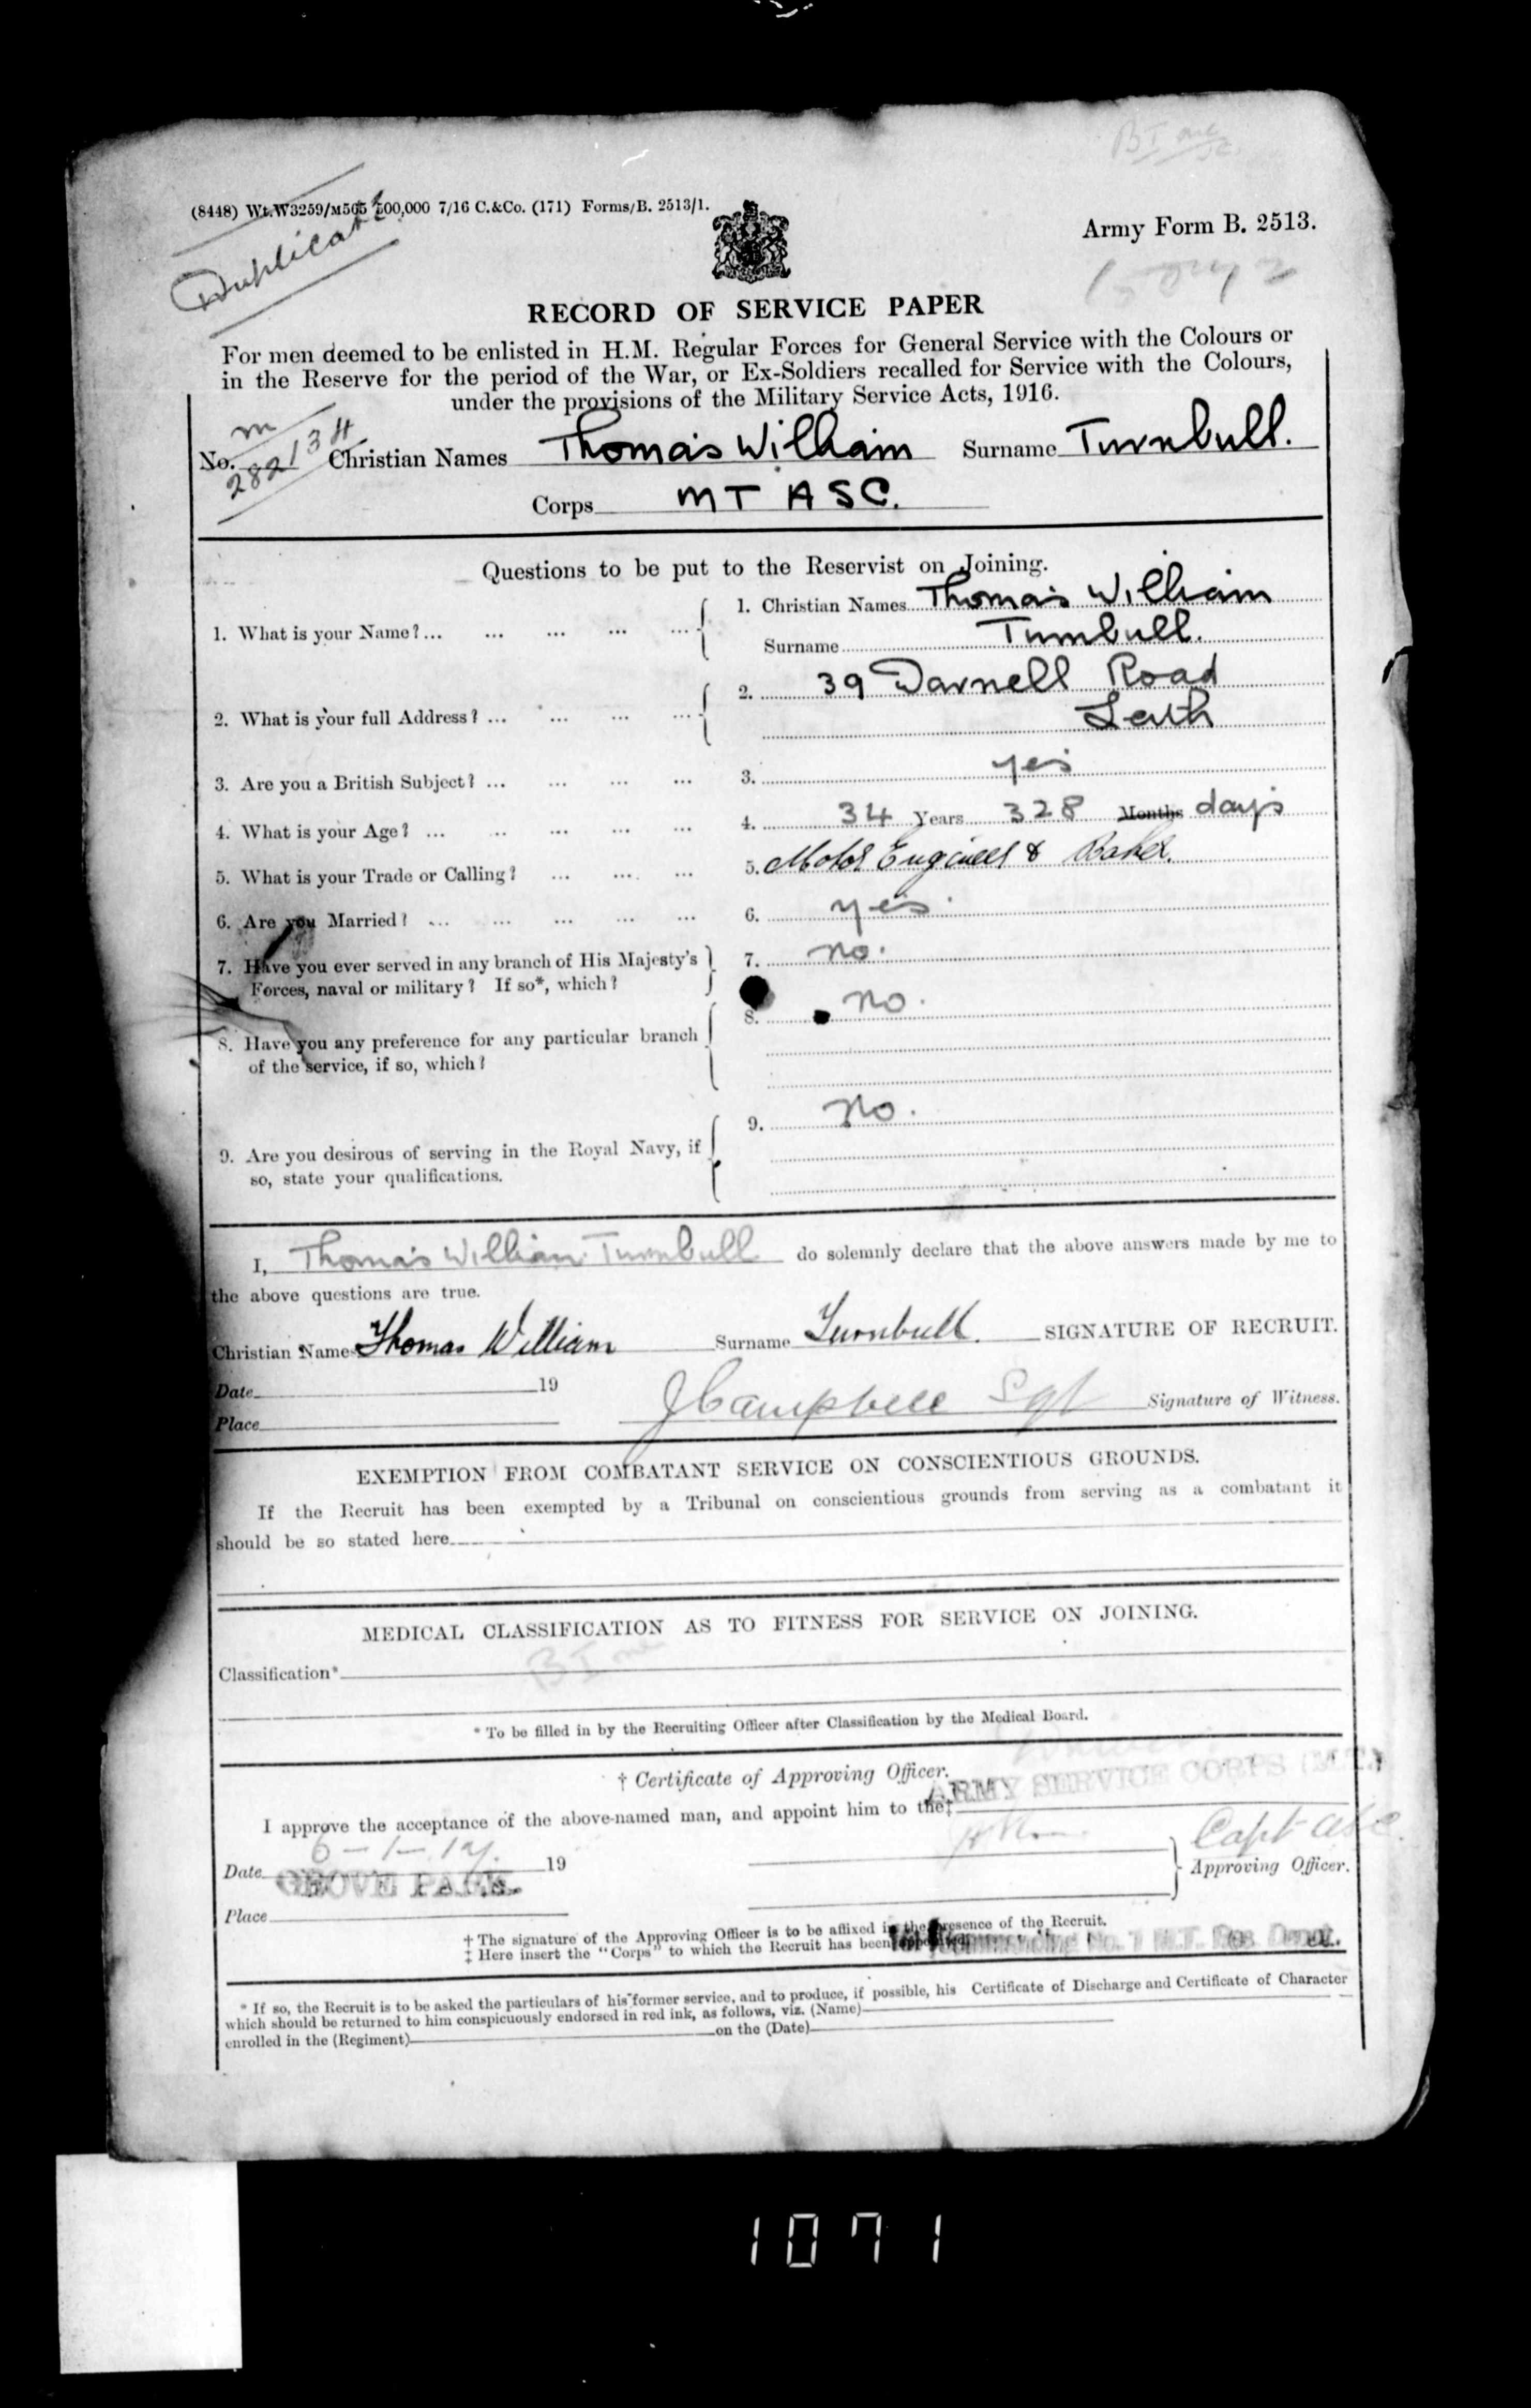 (8448) Wt.W3259/M565 500,000 7/16 C.&Co. (171) Forms/B. 2513/1.
Army Form B. 2513.
Duplicate
RECORD OF SERVICE PAPER
For men deemed to be enlisted in H.M. Regular Forces for General Service with the Colours or
in the Reserve for the period of the War, or Ex-Soldiers recalled for Service with the Colours,
under the provisions of the Military Service Acts, 1916.
No. M 282134 Christian Names Thomas William Surname Turnbull.
Corps MT ASC.
Questions to be put to the Reservist on Joining.
1. What is your Name?... ... ... ... ... 1. Christian Names Thomas William
Surname Turnbull.
2. What is your full Address? ... ... ... ... 2. 39 Darnell Road
Leith
3. Are you a British Subject? ... ... ... ... 3. yes
4. What is your Age? ... ... ... ... ... 4. 34 Years 328 Months days
5. What is your Trade or Calling? ... ... ... 5. Motor Engineer & Baker.
6. Are you Married? ... ... ... ... ... 6. yes.
7. Have you ever served in any branch of His Majesty's 7. no.
Forces, naval or military? If so*, which?
8. Have you any preference for any particular branch 8. no.
of the service, if so, which?
9. Are you desirous of serving in the Royal Navy, if 9. no.
so, state your qualifications.
I, Thomas William Turnbull do solemnly declare that the above answers made by me to
the above questions are true.
Christian Name Thomas William Surname Turnbull. SIGNATURE OF RECRUIT.
Date 19
J Campbell Sgt Signature of Witness.
Place
EXEMPTION FROM COMBATANT SERVICE ON CONSCIENTIOUS GROUNDS.
If the Recruit has been exempted by a Tribunal on conscientious grounds from serving as a combatant it
should be so stated here
MEDICAL CLASSIFICATION AS TO FITNESS FOR SERVICE ON JOINING.
Classification* BI
* To be filled in by the Recruiting Officer after Classification by the Medical Board.
† Certificate of Approving Officer.
I approve the acceptance of the above-named man, and appoint him to the‡ ARMY SERVICE CORPS (M.T.)
Capt ASC.
Date 6-1-17. 19
Approving Officer.
GROVE PARK
Place
† The signature of the Approving Officer is to be affixed in the presence of the Recruit.
‡ Here insert the "Corps" to which the Recruit has been appointed.
Commanding No. 1 M.T. Res. Depot.
* If so, the Recruit is to be asked the particulars of his former service, and to produce, if possible, his Certificate of Discharge and Certificate of Character
which should be returned to him conspicuously endorsed in red ink, as follows, viz. (Name)
enrolled in the (Regiment) on the (Date)
1071